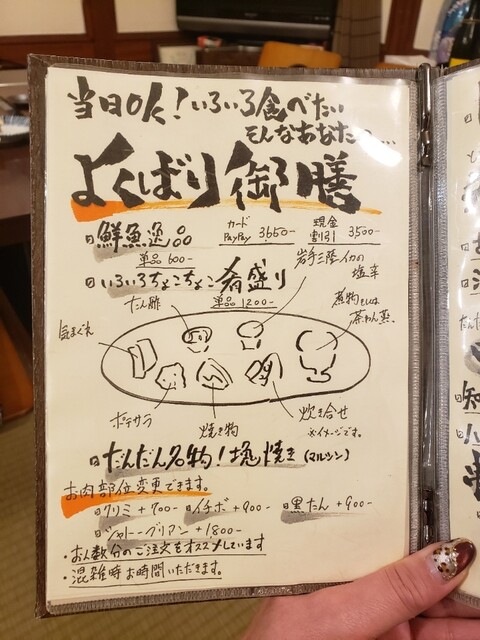 当日OK!いろいろ食べたい
そんなあなたへ…
よくばり御膳
カード PayPay 3,650- 現金割引 3,500-
鮮魚逸品
単品 600-
いろいろちょこちょこ肴盛り
単品 1200-
岩手三陸イカの塩辛
煮物もしくは茶わん蒸し
たん酢
気まぐれ
ポテサラ
焼き物
炊き合せ
※イメージです。
だんだん名物!塊焼き(マルシン)
お肉部位変更できます。
クリミ +700- イチボ +900- 黒たん +900-
シャトーブリアン +1800-
・お人数分のご注文をオススメしています
・混雑時お時間いただきます。